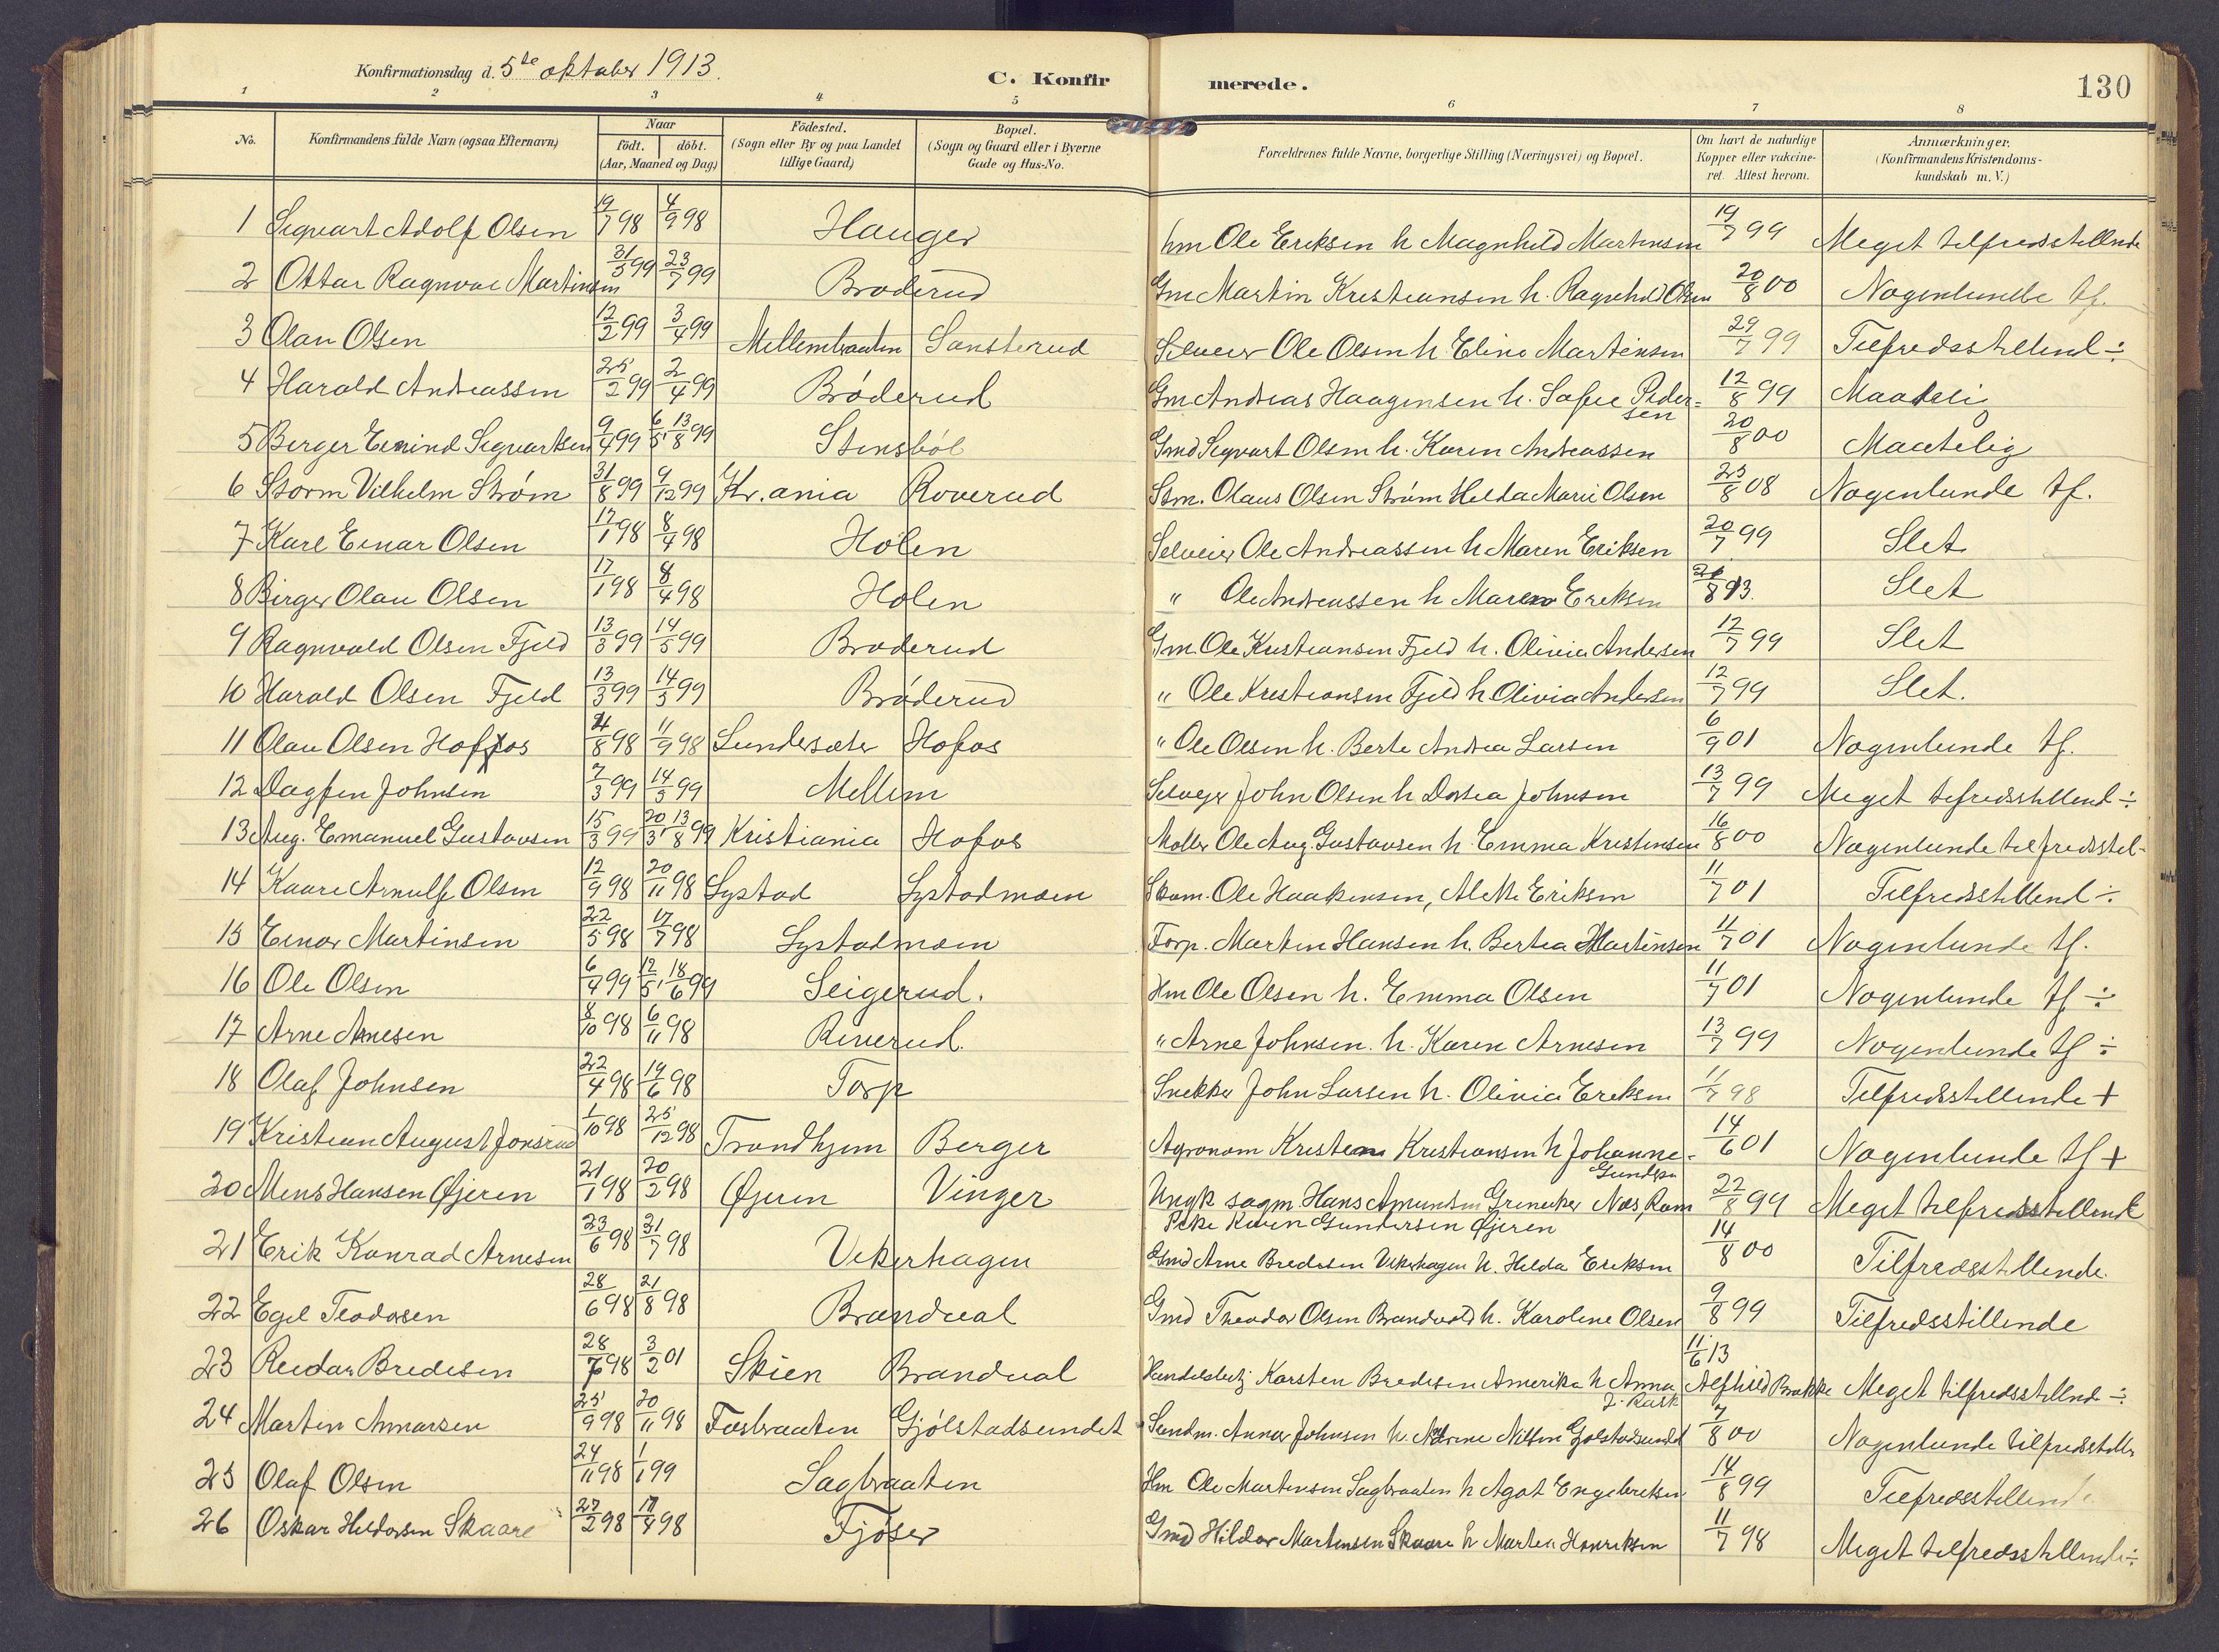 Konfirmationsdag d. 5te oktober 1913.
C. Konfirmerede.
130
1 2 3 4 5 6 7 8
No. Konfirmandens fulde Navn (ogsaa Efternavn) Naar födt. döbt. (Aar, Maaned og Dag) Födested. (Sogn eller By og paa Landet tillige Gaard) Bopæl. (Sogn og Gaard eller i Byerne Gade og Hus-No. Forældrenes fulde Navne, borgerlige Stilling (Næringsvei) og Bopæl. Om havt de naturlige Kopper eller vakcineret. Attest herom. Anmærkninger. (Konfirmandens Kristendomskundskab m. V.)
1 Sigvart Adolf Olsen 19/7 98 4/9 98 Hauger hm Ole Eriksen h Magnhild Martinsen 19/7 99 Meget tilfredsstillende
2 Ottar Ragnvai Martinsen 31/5 99 23/7 99 Broderud Gm Martin Kristiansen h. Ragnhild Olsen 20/8 00 Nogenlunde tf.
3 Olau Olsen 12/2 99 3/4 99 Mellembraaten Sansterud Selveier Ole Olsen h Eline Martinsen 29/7 99 Tilfredsstillend ÷
4 Harald Andreassen 25/2 99 2/4 99 Bröderud Gm Andreas Haagensen h. Sofie Pedersen 12/8 99 Maateli
5 Berger Emind Sigvartsen 9/4 99 6/5 13/8 99 Stensböl Gmd Sigvart Olsen h. Karen Andreassen 20/8 00 Maatelig
6 Storm Vilhelm Ström 31/8 99 9/12 99 Kr.ania Roverud Stm. Olaus Olsen Ström Hilda Marie Olsen 25/8 08 Nogenlunde tf.
7 Karl Einar Olsen 17/1 98 8/4 98 Holen Selveier Ole Andreassen h Maren Eriksen 20/7 99 Slet
8 Birger Olau Olsen 17/1 98 8/4 98 Holen " Ole Andreassen h Maren Eriksen 8 13. Slet
9 Ragnvald Olsen Fjeld 13/3 99 14/5 99 Broderud Gm. Ole Kristiansen Fjeld h. Olivia Andersen 12/7 99 Slet
10 Harald Olsen Fjeld 13/3 99 14/5 99 Bröderud " Ole Kristiansen Fjeld h Olivia Andersen 12/7 99 Slet.
11 Olau Olsen Hoffos 8 98 11/9 98 Lundersæter Hofos " Ole Olsen h. Berte Andrea Larsen 6/9 01 Nogenlunde tf.
12 Dagfin Johnsen 7/3 99 14/5 99 Mellem Selvejer John Olsen h Dortea Johnsen 13/7 99 Meget tefredsstillend ÷
13 Aug. Emanuel Gustavsen 15/3 99 20/3 13/8 99 Kristiania Hofos Moller Ole Aug. Gustavsen h Emma Kristensen 16/8 00 Nogenlunde tilfredsstel-
14 Kaare Arnulf Olsen 12/9 98 20/11 98 Lystad Lystadmoen Skom. Ole Haakensen, Alette Eriksen 11/7 01 Tilfredsstillend ÷
15 Einar Martinsen 22/5 98 17/7 98 Lystadmoen Forp. Martin Hansen h. Bertea Martinsen 11/7 01 Nogenlunde tf.
16 Ole Olsen 6/4 99 12/5 18/6 99 Seigerud. Hm Ole Olsen h. Emma Olsen 11/7 01 Nogenlunde tf ÷
17 Arne Arnesen 8/10 98 6/11 98 Riverud. " Arne Johnsen h. Karen Arnesen 13/7 99 Nogenlunde tf ÷
18 Olaf Johnsen 22/4 98 19/6 98 Torp Snekker John Larsen h. Olivia Eriksen 11/7 98 Tilfredsstillende +
19 Kristian August Jonsrud 1/10 98 25/12 98 Trondhjem Berger Agronom Kristian Kristiansen h Johanne Gundsen 14/6 01 Nogenlunde tf +
20 Mens Hansen Øjeren 21/1 98 20/2 98 Øjeren Vinger Ungk sagm. Hans Amundsen Grinaker Nos, Rom 22/8 99 Meget tilfredsstillend
Pike Karen Gundersen Øjeren
21 Erik Konrad Arnesen 23/6 98 31/7 98 Vikerhagen Gmd Arne Bredesen Vikerhagen h. Hilda Eriksen 14/8 00 Tilfredsstillende.
22 Egil Teodorsen 28/6 98 21/8 98 Brandval Gmd Theodor Olsen Brandvold h. Karoline Olsen 9/8 99 Tilfredsstillende
23 Reidar Bredesen 28/7 98 3/2 01 Skien Brandval Handelsbetj Karsten Bredesen Amerika h Anna Alfhild Brakke 11/6 13 Meget tilfredsstillend ÷
f. Rask
24 Martin Annarsen 25/9 98 20/11 98 Fosbraaten Gjölstadsundet Sundm. Annar Johnsen h. Nilsen Gjolstadsundet 7/8 00 Nogenlunde tilfredsstille
25 Olaf Olsen 24/11 98 1/1 99 Sagbraaten Hm Ole Martinsen Sagbraaten h Agot Engebretsen 14/8 99 Tilfredsstillende
26 Oskar Hildorsen Skaare 27/2 98 17/4 98 Fjöser Gmd Hildor Martinsen Skaare h Martea Henriksen 11/7 98 Meget tilfredsstillende ÷